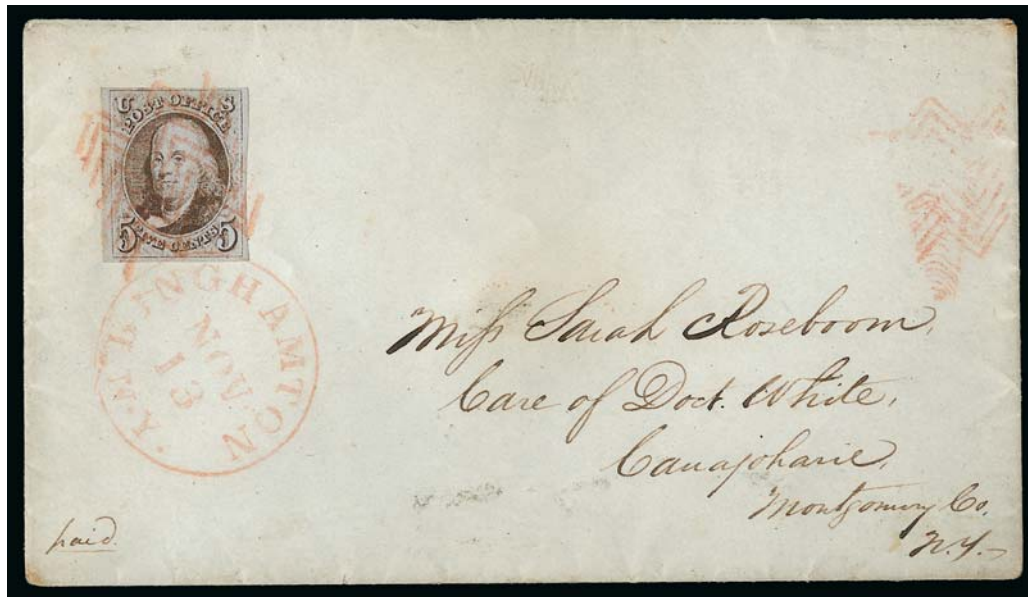 U S
POST OFFICE
5 FIVE CENTS 5
BINGHAMTON N.Y.
NOV
13
Miss Sarah Roseboom,
Care of Doct. White,
Canajoharie,
Montgomery Co.
N.Y.
paid.